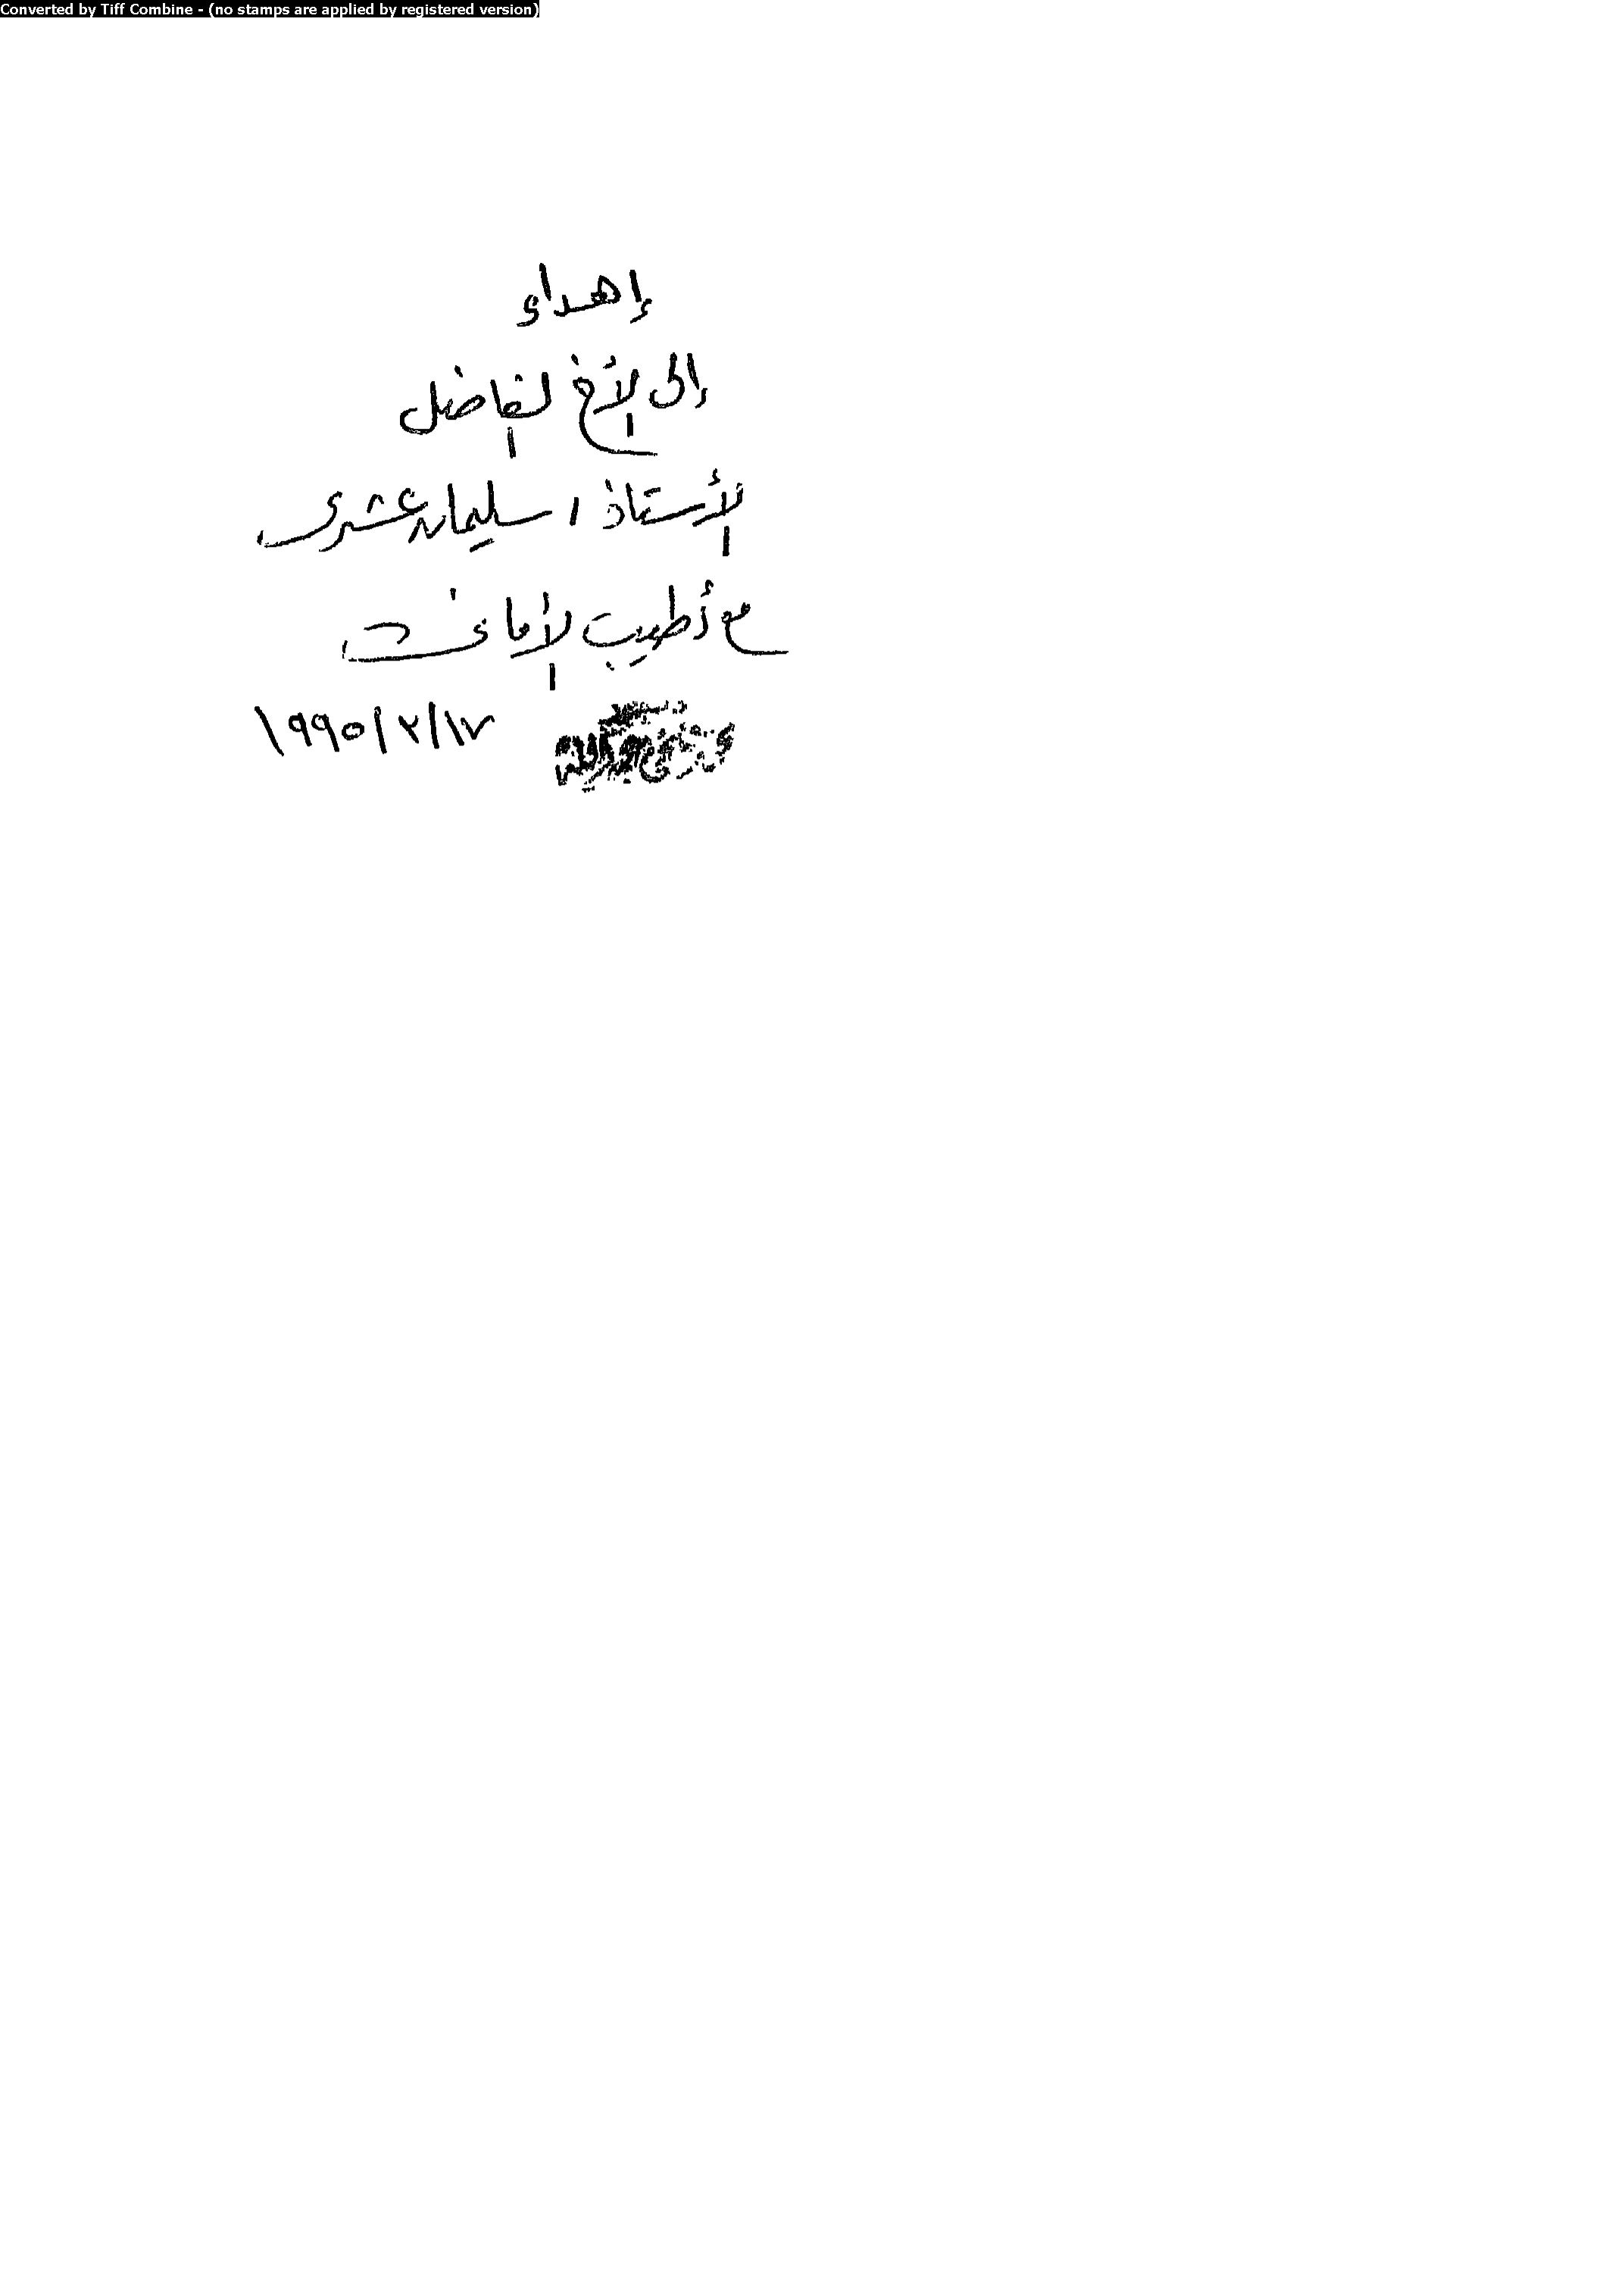 Converted by Tiff Combine - (no stamps are applied by registered version)
إهداء
إلى الأخ الفاضل
الأستاذ / سليمان عشرى
مع أطيب الأمانى
١٩٩٥/٢/١٧